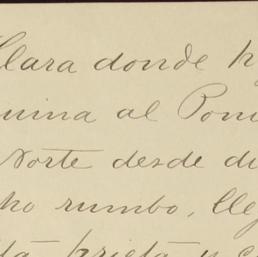 Clara donde h
uina al Poni
Norte desde di
ho rumbo, lle
ta prieta y c